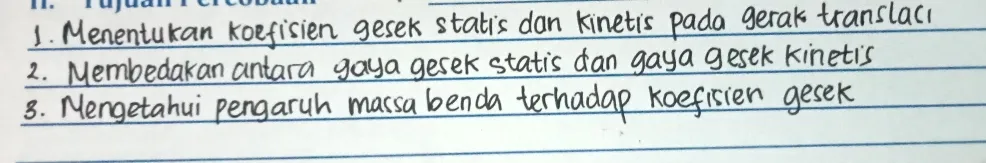 II. Tujuan Percobaan
1. Menentukan koefisien gesek statis dan kinetis pada gerak translasi
2. Membedakan antara gaya gesek statis dan gaya gesek kinetis
3. Mengetahui pengaruh massa benda terhadap koefisien gesek